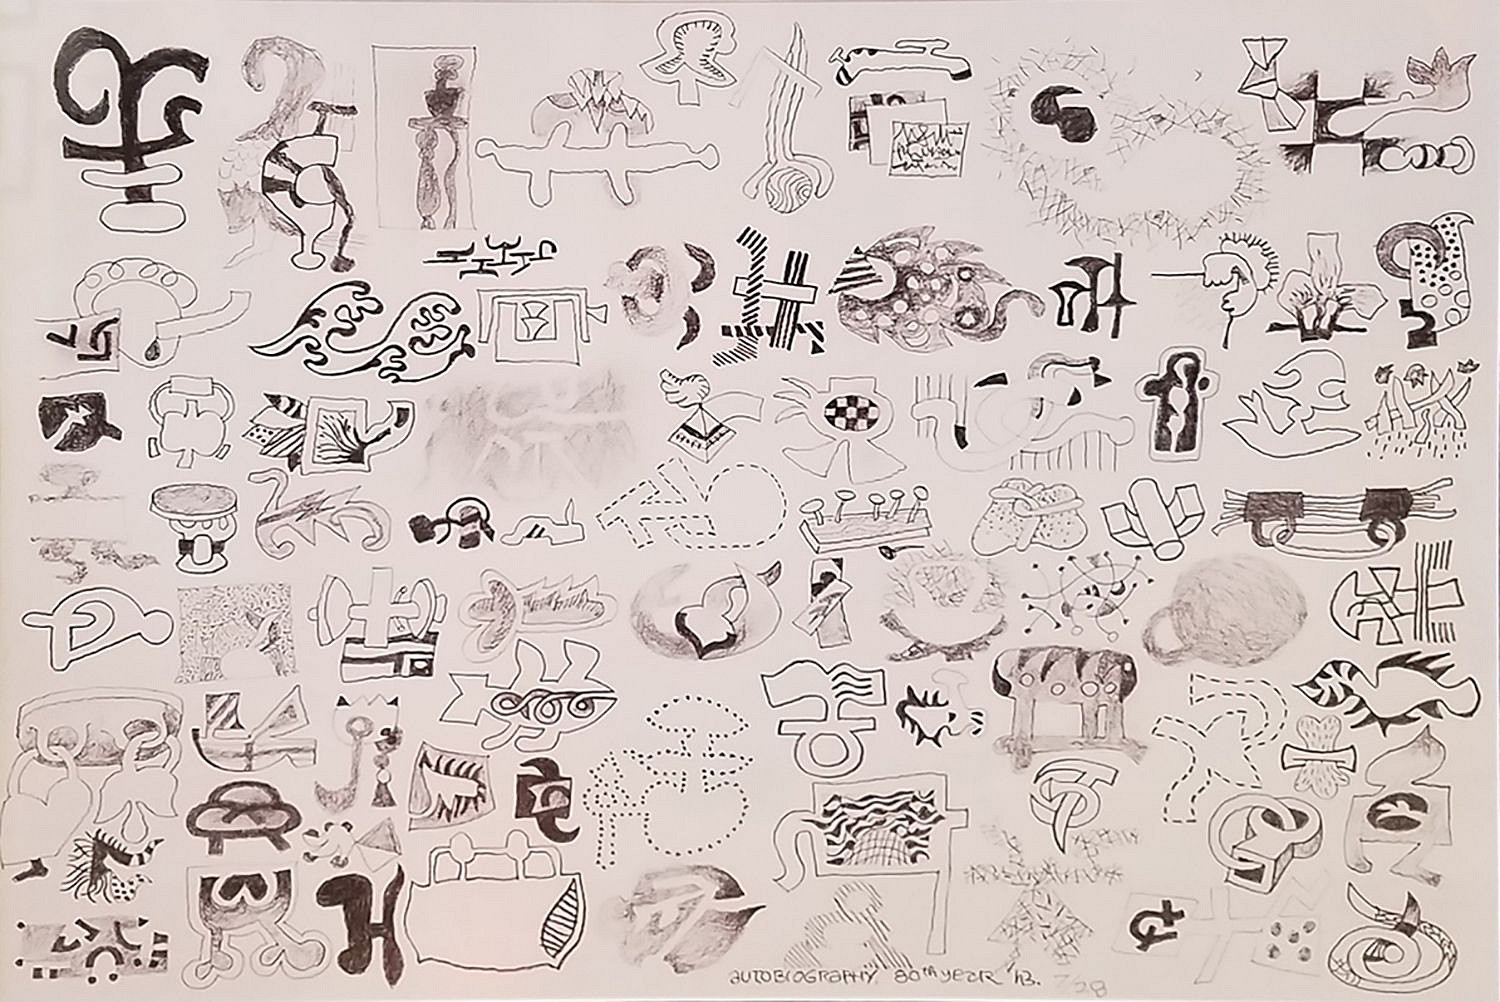 AUTOBIOGRAPHY 80TH YEAR '13. 7/28